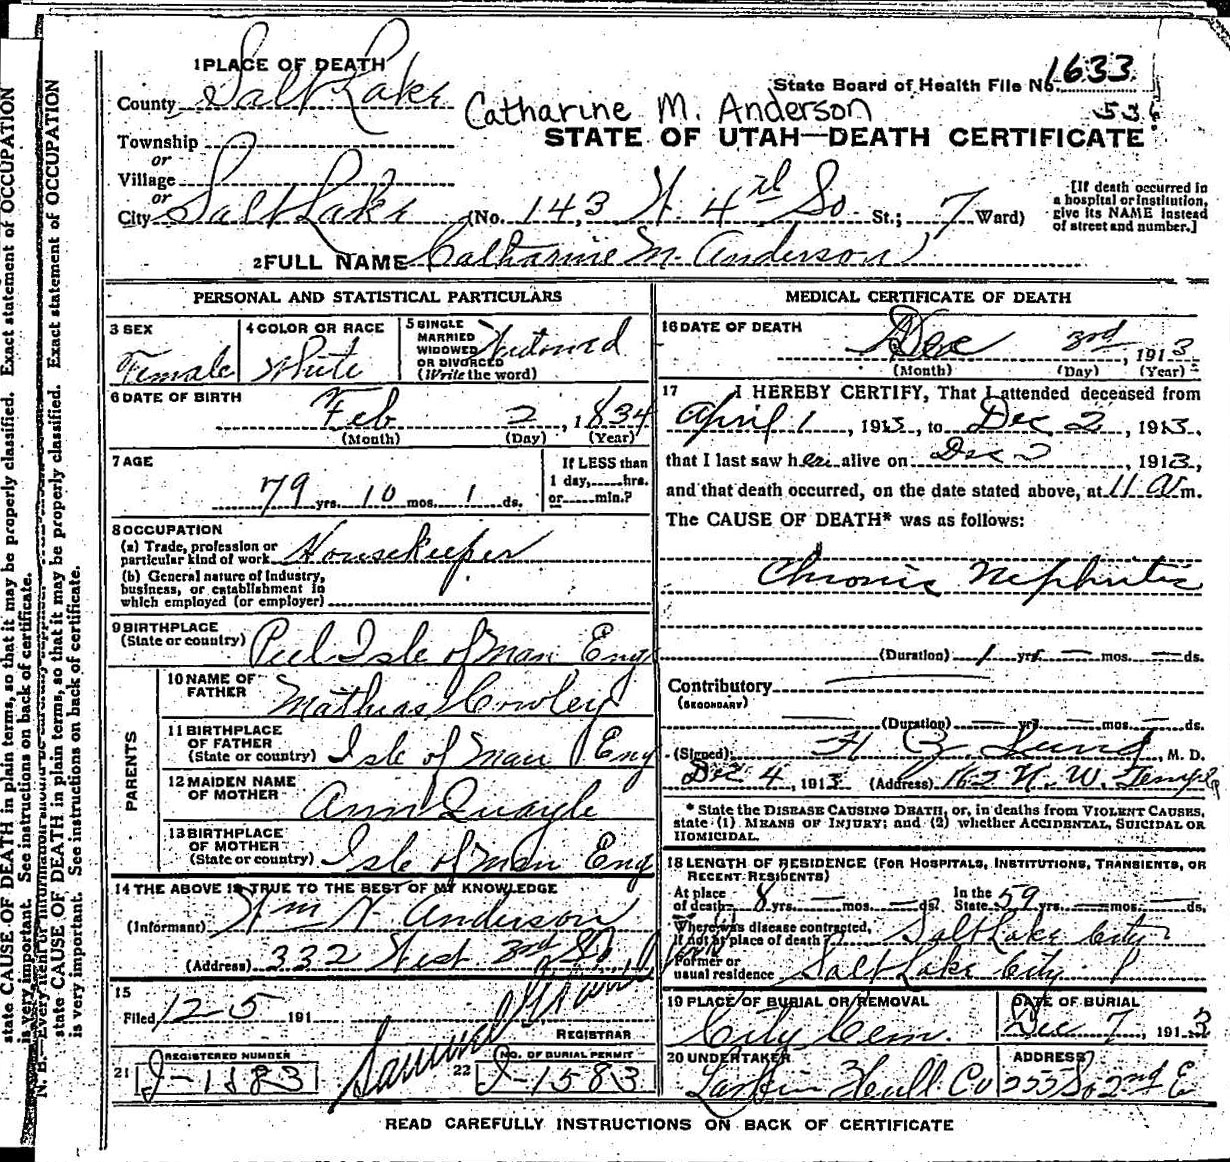 1 PLACE OF DEATH
County Salt Lake
State Board of Health File No. 1633
536
Catharine M. Anderson
STATE OF UTAH—DEATH CERTIFICATE
Township
or
Village
or
City Salt Lake (No. 143 W. 4th So. St.; 7 Ward)
[If death occurred in a hospital or institution, give its NAME instead of street and number.]
2 FULL NAME Catharine M. Anderson
PERSONAL AND STATISTICAL PARTICULARS
3 SEX Female
4 COLOR OR RACE White
5 SINGLE MARRIED WIDOWED OR DIVORCED (Write the word) Widowed
6 DATE OF BIRTH Feb 2, 1834
(Month) (Day) (Year)
7 AGE 79 yrs. 10 mos. 1 ds.
If LESS than 1 day, hrs. or min.?
8 OCCUPATION
(a) Trade, profession or particular kind of work Housekeeper
(b) General nature of industry, business, or establishment in which employed (or employer)
9 BIRTHPLACE (State or country) Peel Isle of Man Eng
PARENTS
10 NAME OF FATHER Mathias Cowley
11 BIRTHPLACE OF FATHER (State or country) Isle of Man Eng
12 MAIDEN NAME OF MOTHER Ann Quayle
13 BIRTHPLACE OF MOTHER (State or country) Isle of Man Eng
14 THE ABOVE IS TRUE TO THE BEST OF MY KNOWLEDGE
(Informant) Wm N. Anderson
(Address) 332 West 3rd So
15
Filed 12-5 191
Samuel
REGISTRAR
21 REGISTERED NUMBER J-1583
22 NO. OF BURIAL PERMIT J-1583
MEDICAL CERTIFICATE OF DEATH
16 DATE OF DEATH Dec 3rd, 1913
(Month) (Day) (Year)
17 I HEREBY CERTIFY, That I attended deceased from
April 1, 1913, to Dec 2, 1913,
that I last saw her alive on Dec 2, 1913,
and that death occurred, on the date stated above, at 11 a.m.
The CAUSE OF DEATH* was as follows:
Chronic Nephritis
(Duration) 1 yrs. — mos. — ds.
Contributory
(SECONDARY)
(Duration) — yrs. — mos. — ds.
(Signed) H Z Lund, M. D.
Dec 4, 1913 (Address) 162 N. W. Temple
* State the DISEASE CAUSING DEATH, or, in deaths from VIOLENT CAUSES, state (1) MEANS OF INJURY; and (2) whether ACCIDENTAL, SUICIDAL OR HOMICIDAL.
18 LENGTH OF RESIDENCE (FOR HOSPITALS, INSTITUTIONS, TRANSIENTS, OR RECENT RESIDENTS)
At place of death 8 yrs. — mos. — ds. In the State 59 yrs. — mos. — ds.
Where was disease contracted, if not at place of death? Salt Lake City
Former or usual residence Salt Lake City
19 PLACE OF BURIAL OR REMOVAL City Cem.
DATE OF BURIAL Dec 7, 1913
20 UNDERTAKER Larkin Hull Co
ADDRESS 255 So 2nd E
READ CAREFULLY INSTRUCTIONS ON BACK OF CERTIFICATE
state CAUSE OF DEATH in plain terms, so that it may be properly classified. Exact statement of OCCUPATION
is very important. See instructions on back of certificate.
state CAUSE OF DEATH in plain terms, so that it may be properly classified. Exact statement of OCCUPATION
is very important. See instructions on back of certificate.